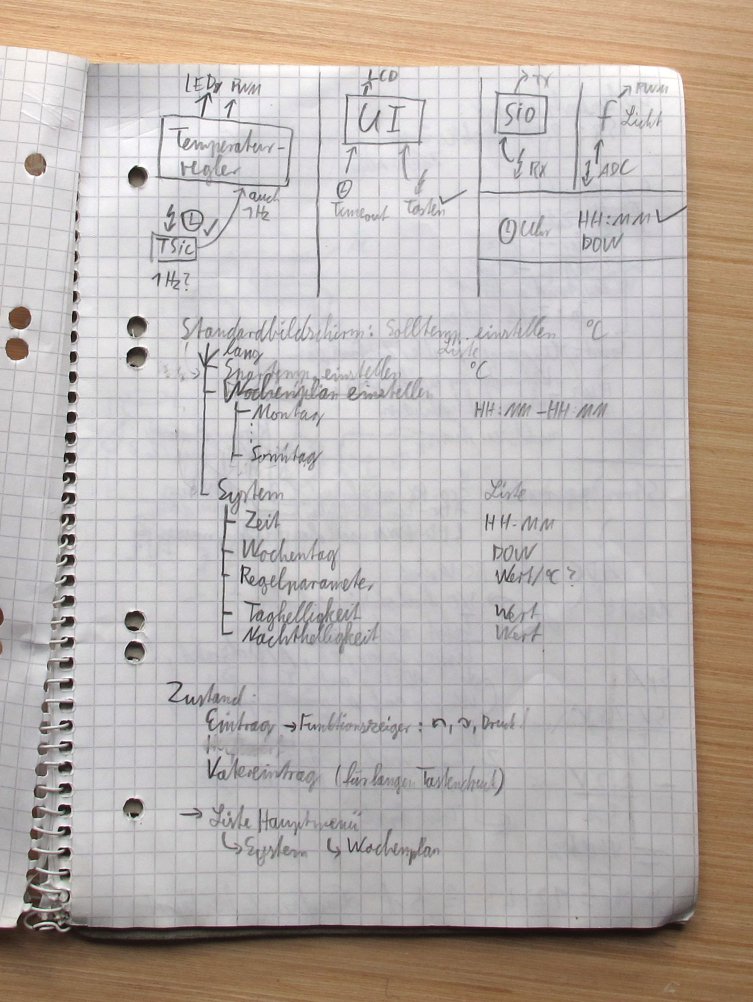 LEDs PWM
Temperatur-
regler
auch
1Hz
TSic
1Hz?
LCD
UI
Timeout
Tasten
TX
SIO
RX
PWM
f Licht
ADC
Uhr
HH:MM
DOW
Standardbildschirm: Solltemp. einstellen °C
lang
Liste
Spartemp. einstellen °C
Wochenplan einstellen
Montag HH:MM-HH:MM
Sonntag
System Liste
Zeit HH-MM
Wochentag DOW
Regelparameter Wert/°C?
Taghelligkeit Wert
Nachthelligkeit Wert
Zustand:
Eintrag → Funktionszeiger: , , Druck!
Vatereintrag (für langen Tastendruck)
→ Liste Hauptmenü
↳ System ↳ Wochenplan